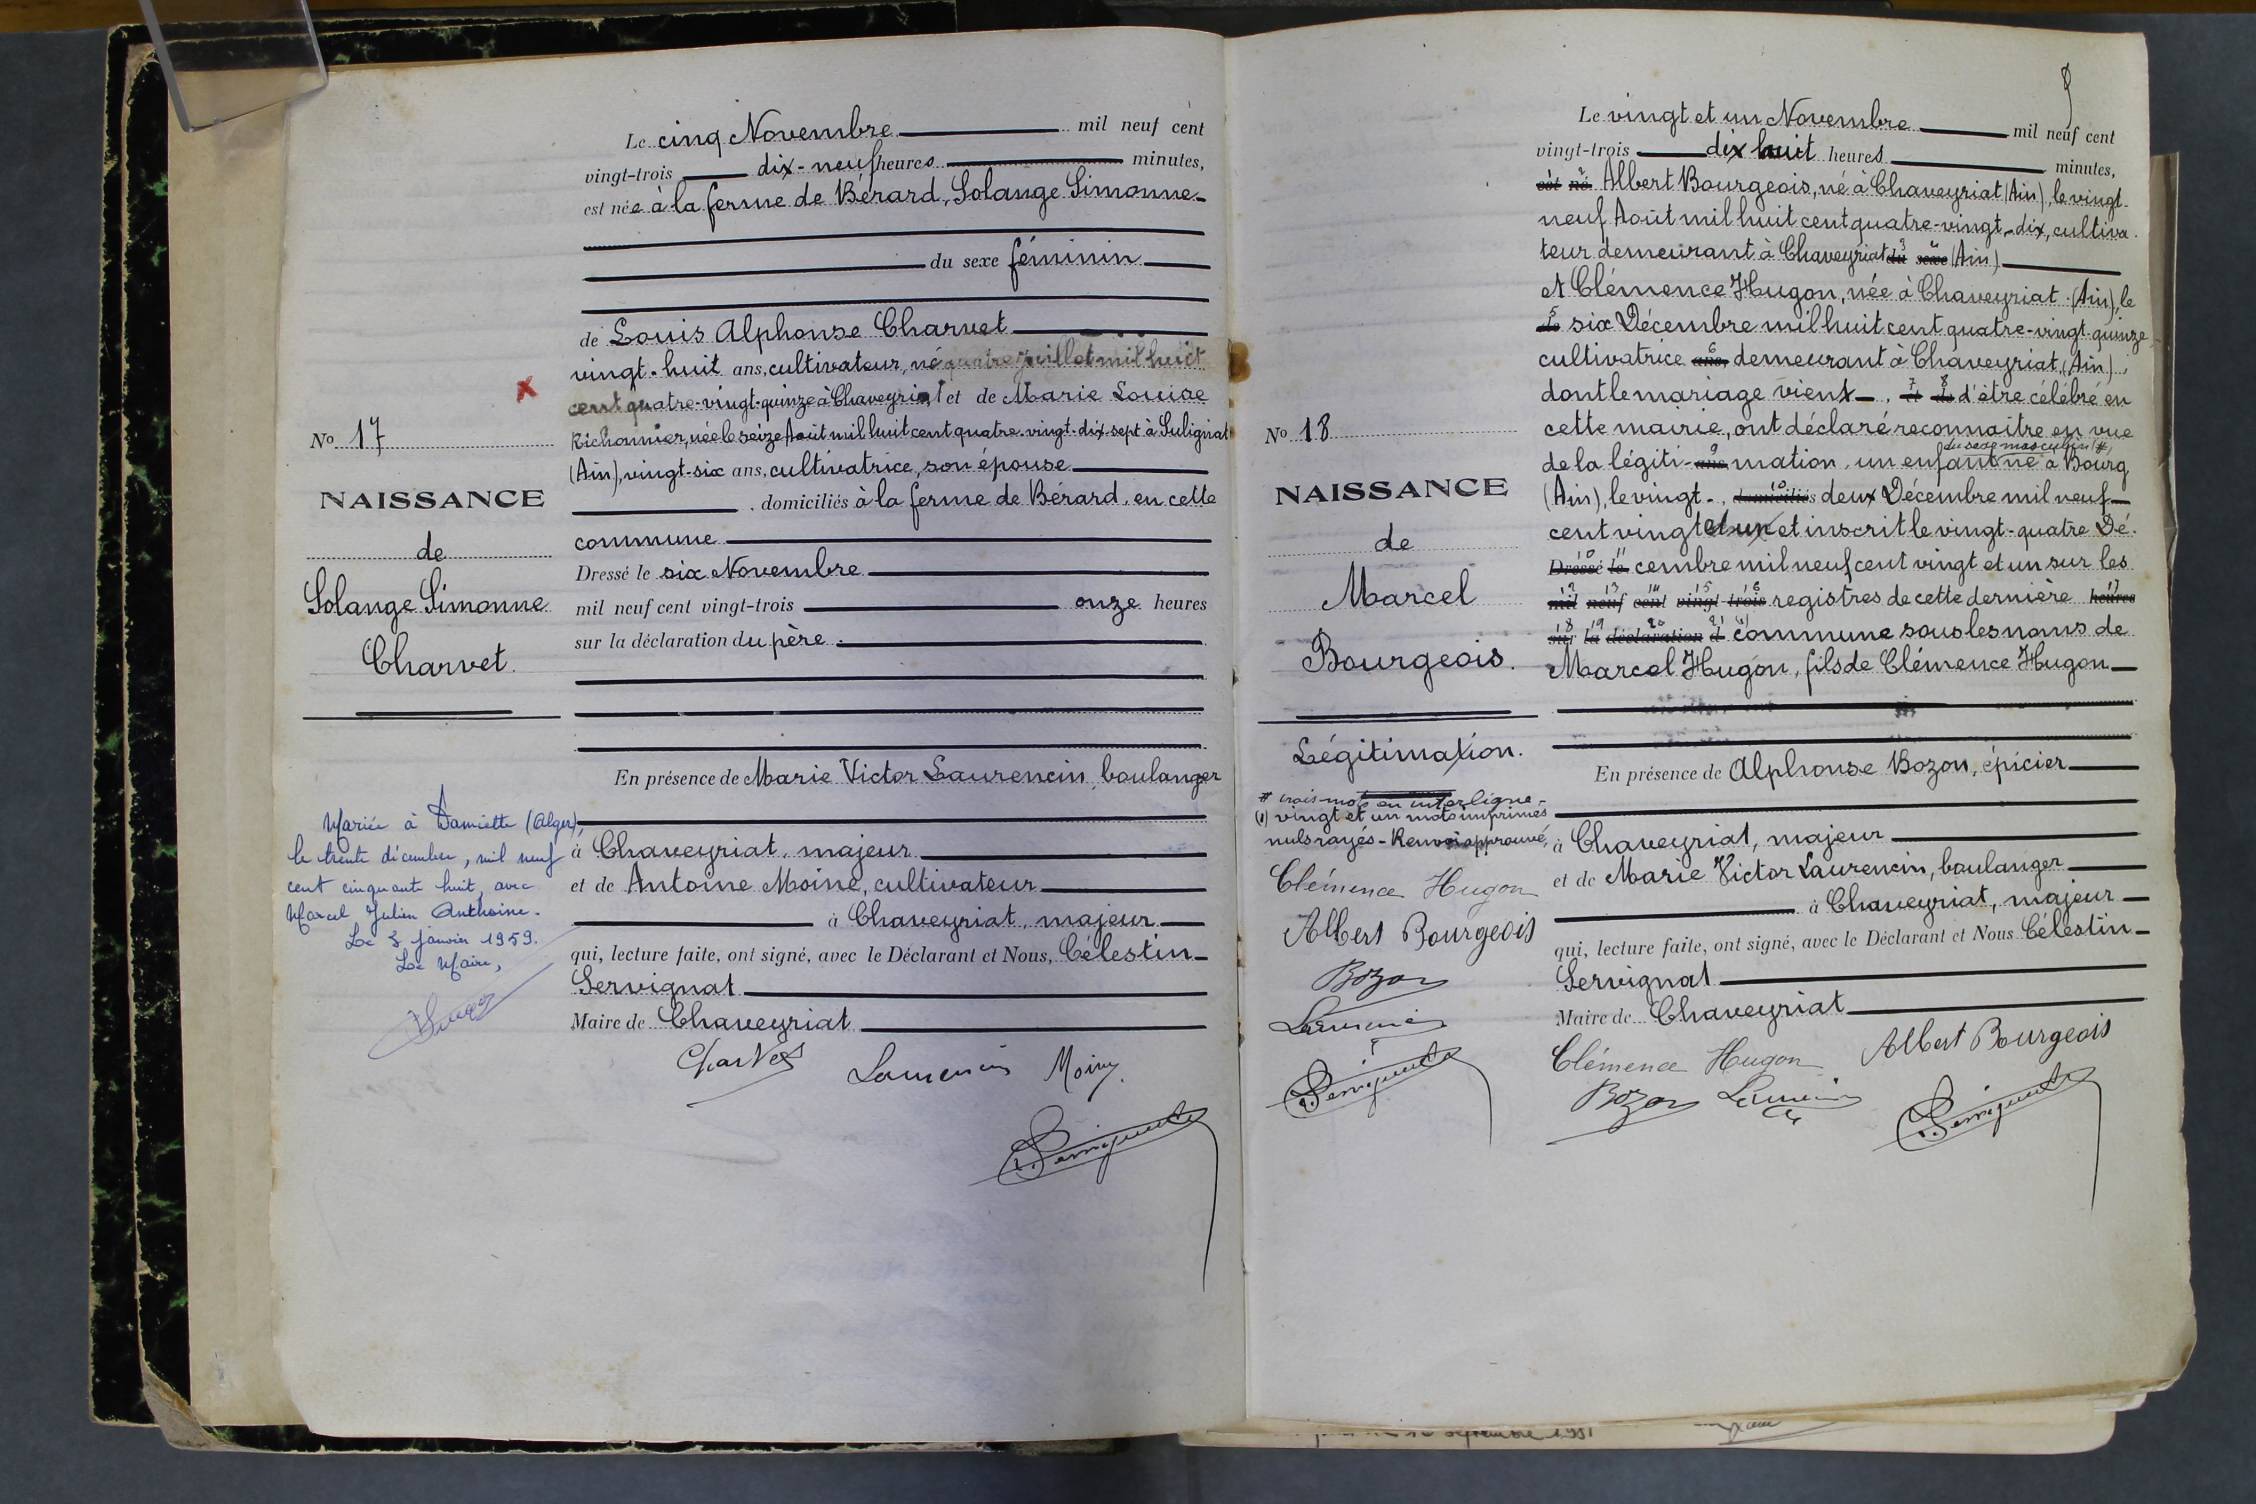 Le cinq Novembre mil neuf cent
vingt-trois dix-neuf heures minutes,
est née à la ferme de Bérard, Solange Simonne
du sexe féminin
de Louis Alphonse Charvet
vingt-huit ans, cultivateur, né quatre juillet mil huit
cent quatre-vingt-quinze à Chaveyriat et de Marie Louise
Richonnier, née le seize Août mil huit cent quatre-vingt-dix-sept à Sulignat
(Ain), vingt-six ans, cultivatrice, son épouse
, domiciliés à la ferme de Bérard, en cette
commune
Dressé le six Novembre
mil neuf cent vingt-trois onze heures
sur la déclaration du père.
En présence de Marie Victor Laurencin, boulanger
à Chaveyriat, majeur
et de Antoine Moine, cultivateur
à Chaveyriat, majeur
qui, lecture faite, ont signé, avec le Déclarant et Nous, Célestin
Servignat
Maire de Chaveyriat
Charvet Laurencin Moine
C. Servignat
No 17
NAISSANCE
de
Solange Simonne
Charvet.
Mariée à Damiette (Alger),
le trente décembre, mil neuf
cent cinquante huit, avec
Marcel Julien Anthoine.
Le 5 janvier 1959.
Le Maire,
9
Le vingt et un Novembre mil neuf cent
vingt-trois dix huit heures minutes,
est né Albert Bourgeois, né à Chaveyriat (Ain), le vingt-
neuf Août mil huit cent quatre-vingt-dix, cultiva-
teur demeurant à Chaveyriat du sexe (Ain)
et Clémence Hugon, née à Chaveyriat (Ain), le
de six Décembre mil huit cent quatre-vingt-quinze
cultivatrice ans, demeurant à Chaveyriat, (Ain),
dont le mariage vient , et de d'être célébré en
cette mairie, ont déclaré reconnaitre en vue
du sexe masculin (#)
de la légiti- ans mation, un enfant né à Bourg
(Ain), le vingt- , domiciliés deux Décembre mil neuf
cent vingt et un et inscrit le vingt-quatre Dé-
Dressé le cembre mil neuf cent vingt et un sur les
mil neuf cent vingt trois registres de cette dernière heures
sur la déclaration d (1) commune sous les noms de
Marcel Hugon, fils de Clémence Hugon
En présence de Alphonse Bozon, épicier
à Chaveyriat, majeur
et de Marie Victor Laurencin, boulanger
à Chaveyriat, majeur
qui, lecture faite, ont signé, avec le Déclarant et Nous Célestin
Servignat
Maire de Chaveyriat
Clémence Hugon Albert Bourgeois
Bozon Laurencin
C. Servignat
No 18
NAISSANCE
de
Marcel
Bourgeois.
Légitimation.
# trois mots en interligne -
(1) vingt et un mots imprimés
nuls rayés - Renvoi approuvé,
Clémence Hugon
Albert Bourgeois
Bozon
Laurencin
C. Servignat
Septembre 1931